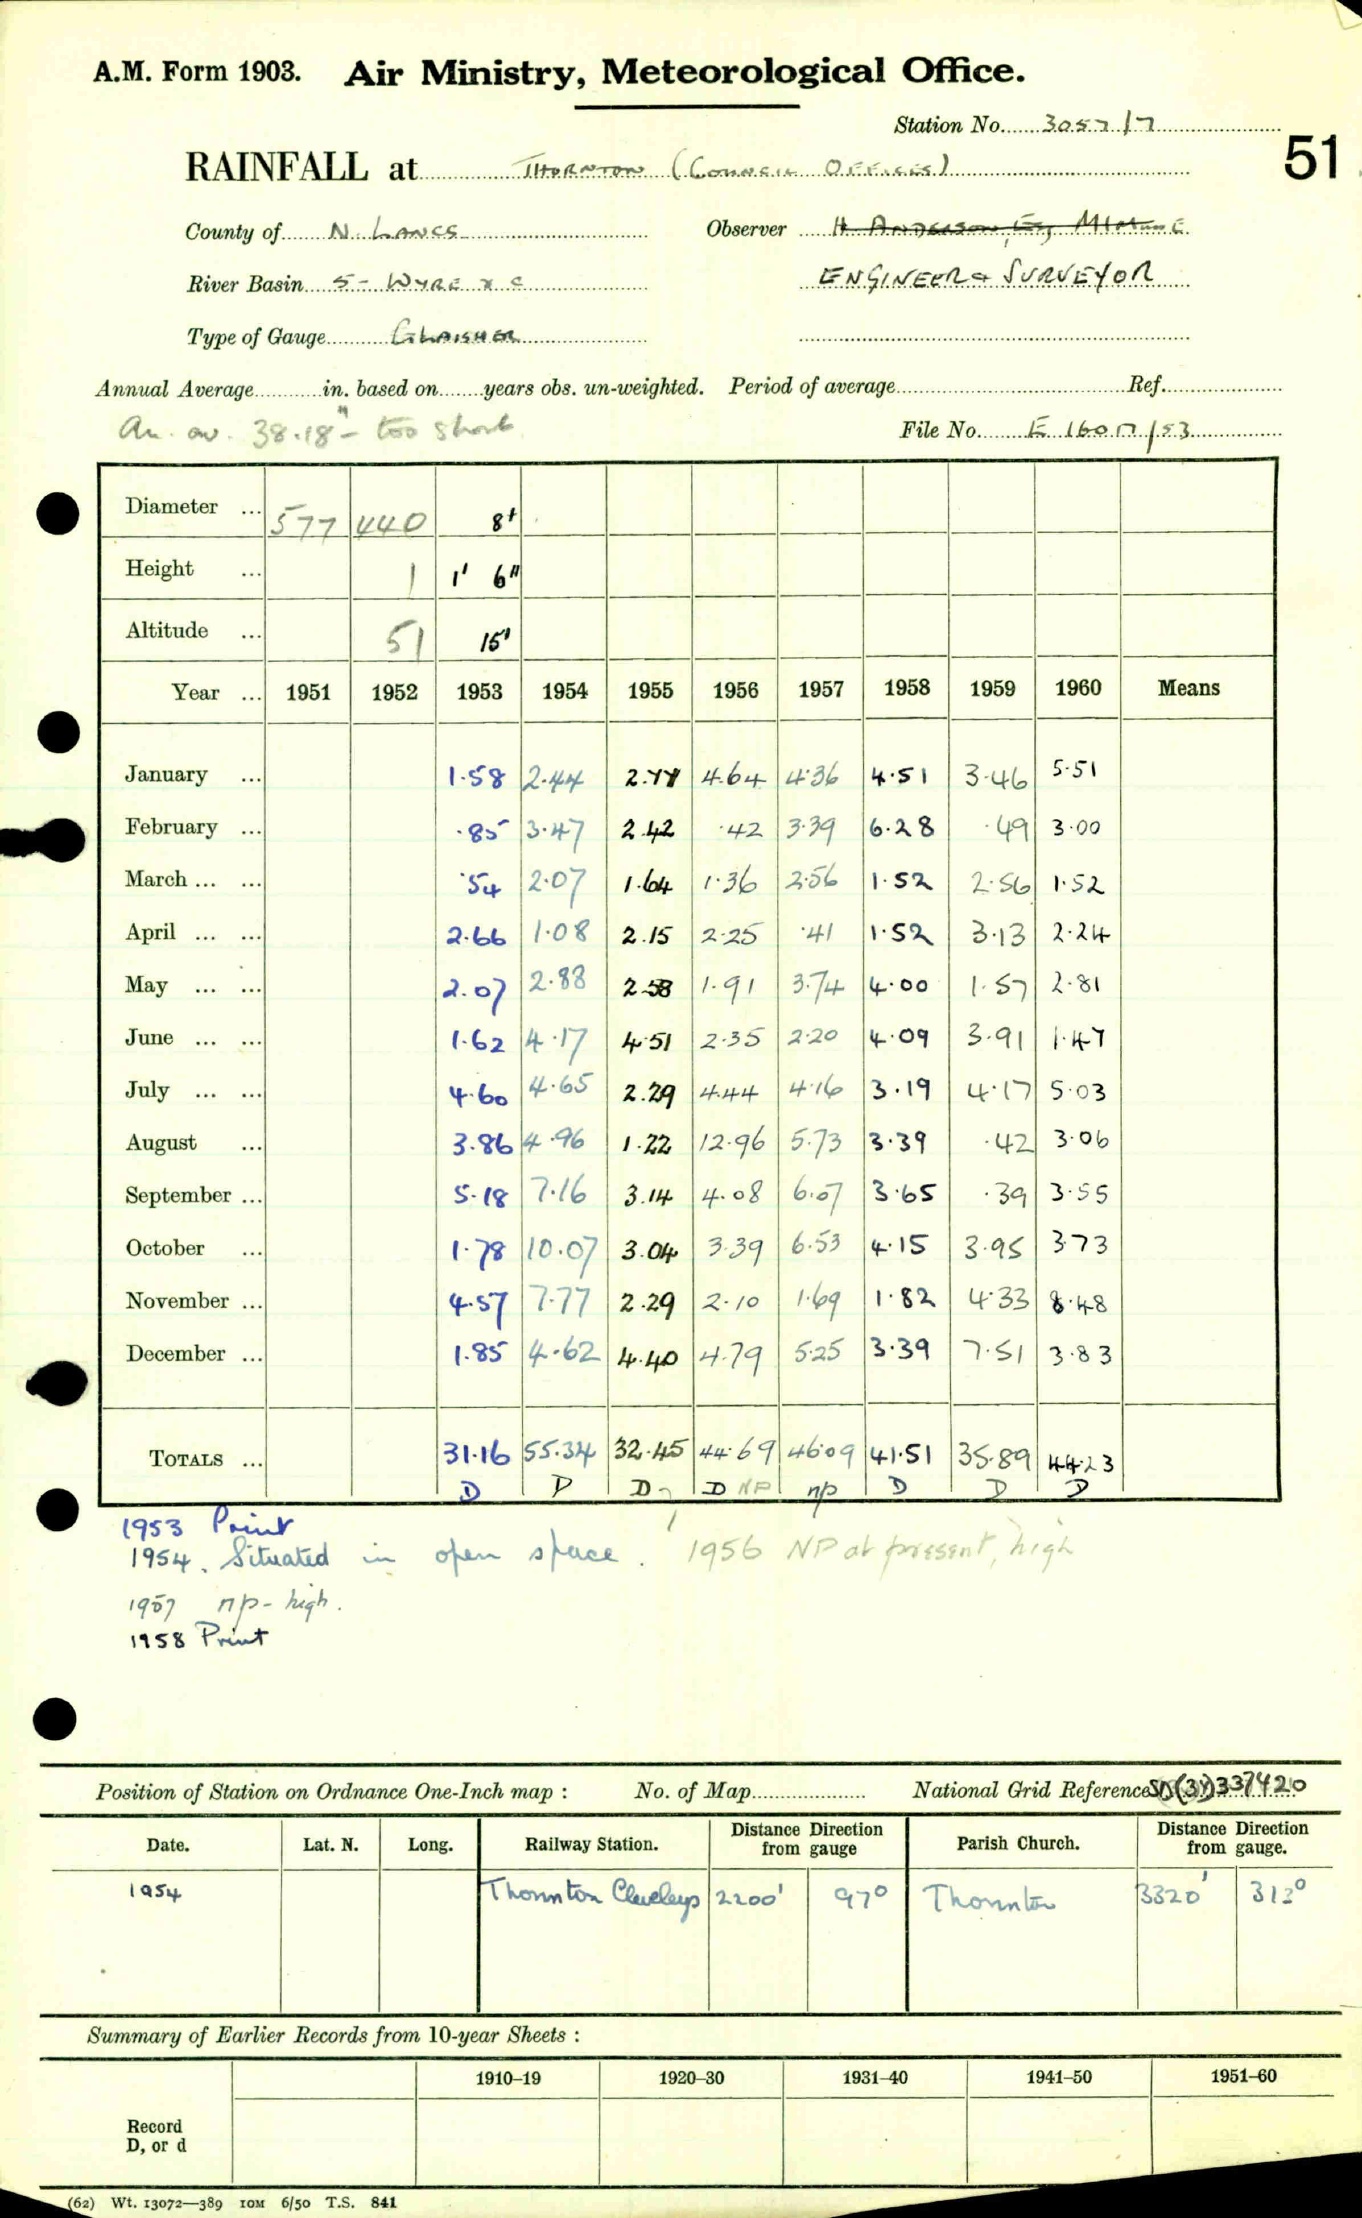 A.M. Form 1903. Air Ministry, Meteorological Office.
Station No. 3057/7
51
RAINFALL at THORNTON (COUNCIL OFFICES)
County of N. LANCS Observer H ANDERSON, Esq
River Basin 5 - WYRE & C ENGINEER & SURVEYOR
Type of Gauge GLAISHER
Annual Average in. based on years obs. un-weighted. Period of average Ref.
An. av. 38.18" - too short File No. E 16017/53
Diameter ... 577 440 8"
Height ... 1 1' 6"
Altitude ... 51 15'
Year ... 1951 1952 1953 1954 1955 1956 1957 1958 1959 1960 Means
January ... 1.58 2.44 4.64 4.36 4.51 3.46 5.51
February ... .85 3.47 2.42 .42 3.39 6.28 .49 3.00
March ... ... .54 2.07 1.64 1.36 2.56 1.52 2.56 1.52
April ... ... 2.66 1.08 2.15 2.25 .41 1.52 3.13 2.24
May ... ... 2.07 2.88 2.58 1.91 3.74 4.00 1.57 2.81
June ... ... 1.62 4.17 4.51 2.35 2.20 4.09 3.91 1.47
July ... ... 4.60 4.65 2.29 4.44 4.16 3.19 4.17 5.03
August ... 3.86 4.96 1.22 12.96 5.73 3.39 .42 3.06
September ... 5.18 7.16 3.14 4.08 6.07 3.65 .39 3.55
October ... 1.78 10.07 3.04 3.39 6.53 4.15 3.95 3.73
November ... 4.57 7.77 2.29 2.10 1.69 1.82 4.33 8.48
December ... 1.85 4.62 4.40 4.79 5.25 3.39 7.51 3.83
TOTALS ... 31.16 55.34 32.45 44.69 46.09 41.51 35.89 44.23
D D D D NP np D D D
1953 Print
1954. Situated in open space. 1956 NP at present, high
1957 np - high.
1958 Print
Position of Station on Ordnance One-Inch map : No. of Map National Grid Reference SD(34)337420
Date. Lat. N. Long. Railway Station. Distance Direction from gauge Parish Church. Distance Direction from gauge.
1954 Thornton Cleveleys 2200' 97° Thornton 3320' 313°
Summary of Earlier Records from 10-year Sheets :
1910–19 1920–30 1931–40 1941–50 1951–60
Record
D, or d
(62) Wt. 13072—389 10M 6/50 T.S. 841